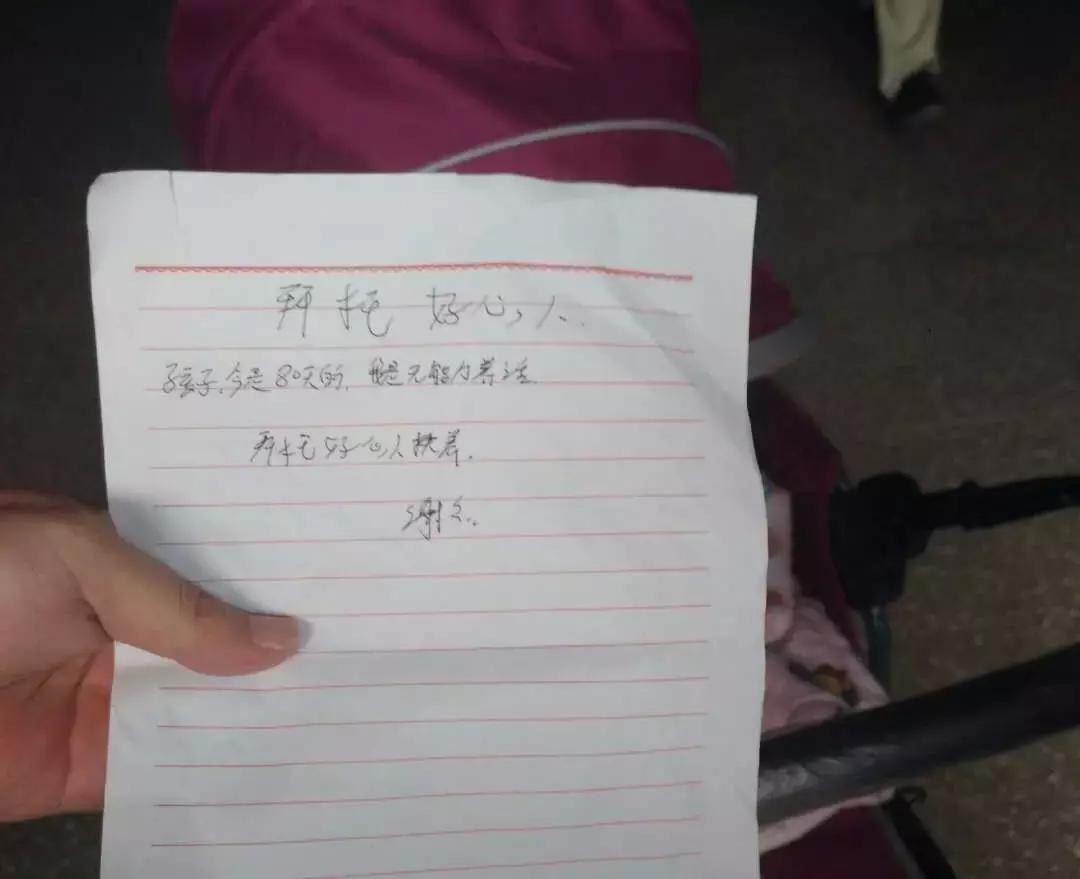 拜托 好心人.
孩子,今是80天的, 我是无能力养活
拜托好心人扶养.
谢谢.